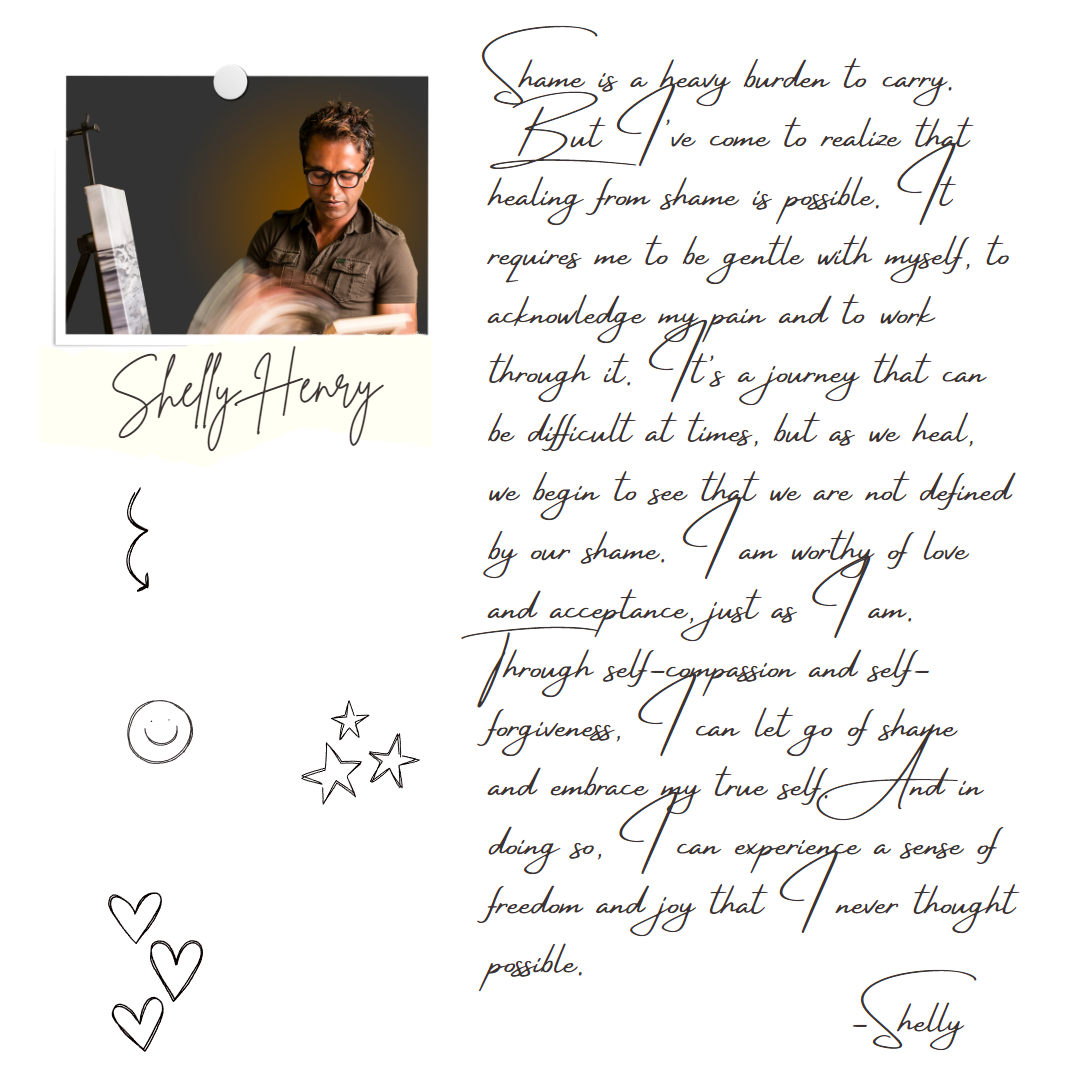 Shelly Henry
Shame is a heavy burden to carry.
But I've come to realize that
healing from shame is possible. It
requires me to be gentle with myself, to
acknowledge my pain and to work
through it. It's a journey that can
be difficult at times, but as we heal,
we begin to see that we are not defined
by our shame. I am worthy of love
and acceptance, just as I am.
Through self-compassion and self-
forgiveness, I can let go of shame
and embrace my true self. And in
doing so, I can experience a sense of
freedom and joy that I never thought
possible.
-Shelly